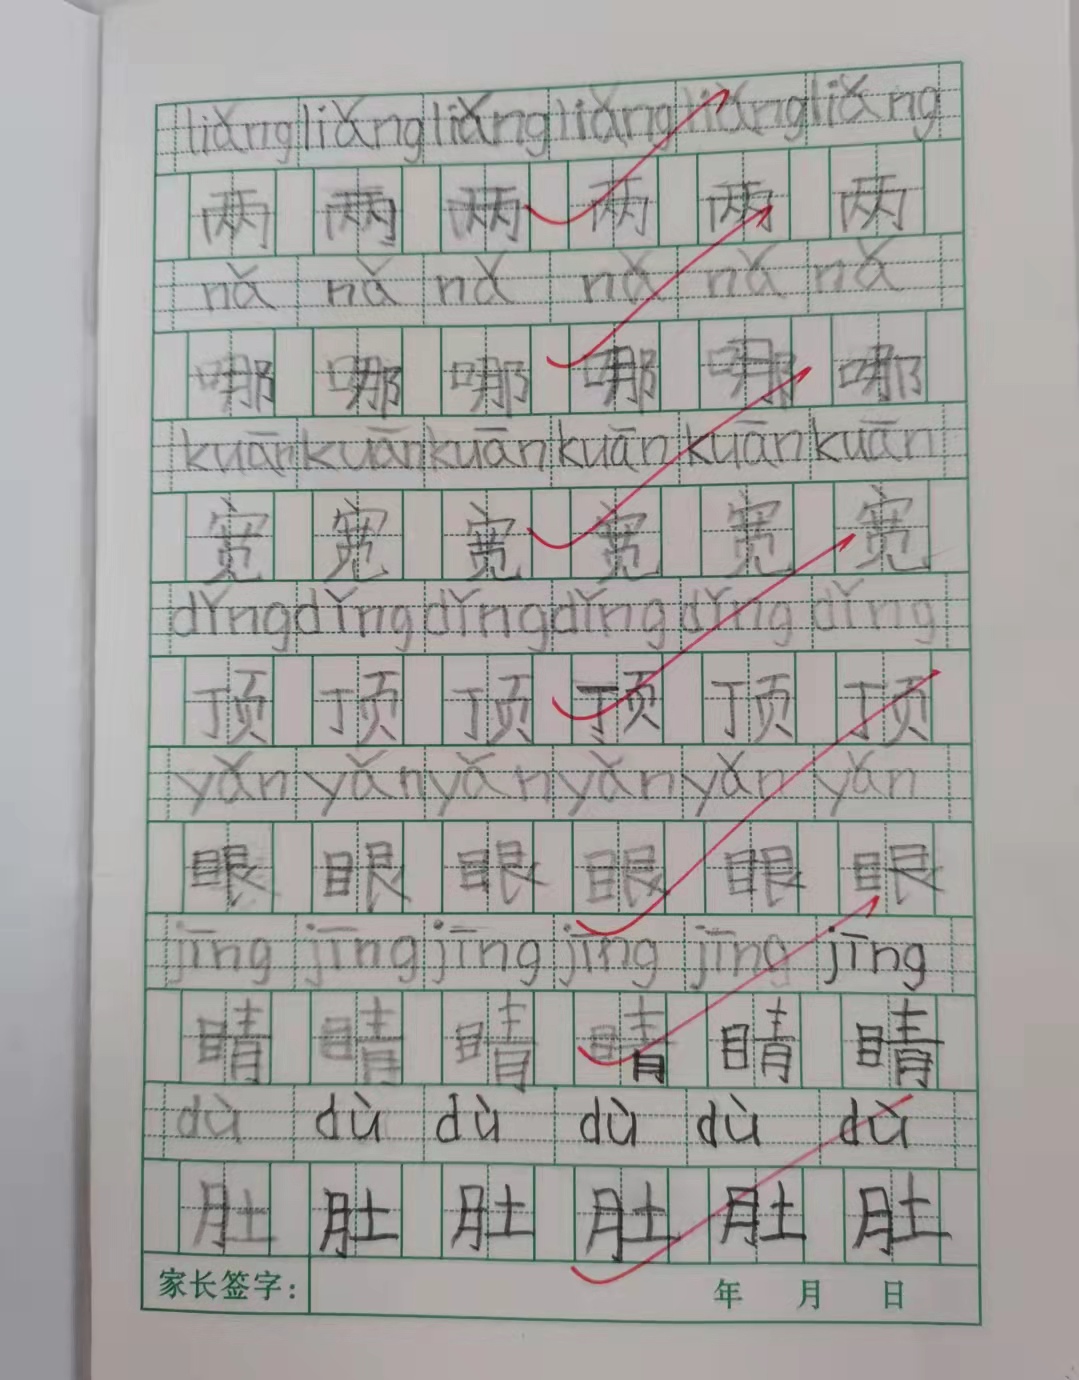 liǎng liǎng liǎng liǎng liǎng liǎng
两 两 两 两 两 两
nǎ nǎ nǎ nǎ nǎ nǎ
哪 哪 哪 哪 哪 哪
kuān kuān kuān kuān kuān kuān
宽 宽 宽 宽 宽 宽
dǐng dǐng dǐng dǐng dǐng dǐng
顶 顶 顶 顶 顶 顶
yǎn yǎn yǎn yǎn yǎn yǎn
眼 眼 眼 眼 眼 眼
jīng jīng jīng jīng jīng jīng
睛 睛 睛 睛 睛 睛
dù dù dù dù dù dù
肚 肚 肚 肚 肚 肚
家长签字: 年 月 日